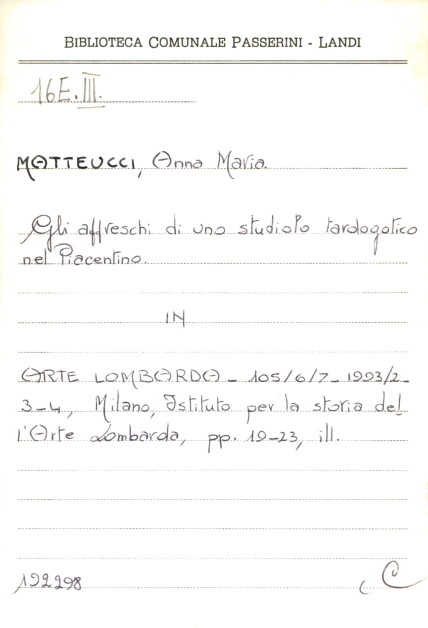 BIBLIOTECA COMUNALE PASSERINI - LANDI
16E.III.
MATTEUCCI, Anna Maria.
Gli affreschi di uno studiolo tardogotico
nel Piacentino.
IN
ARTE LOMBARDA - 105/6/7 - 1993/2-
3-4, Milano, Istituto per la storia del
l'Arte Lombarda, pp. 19-23, ill.
192298
C